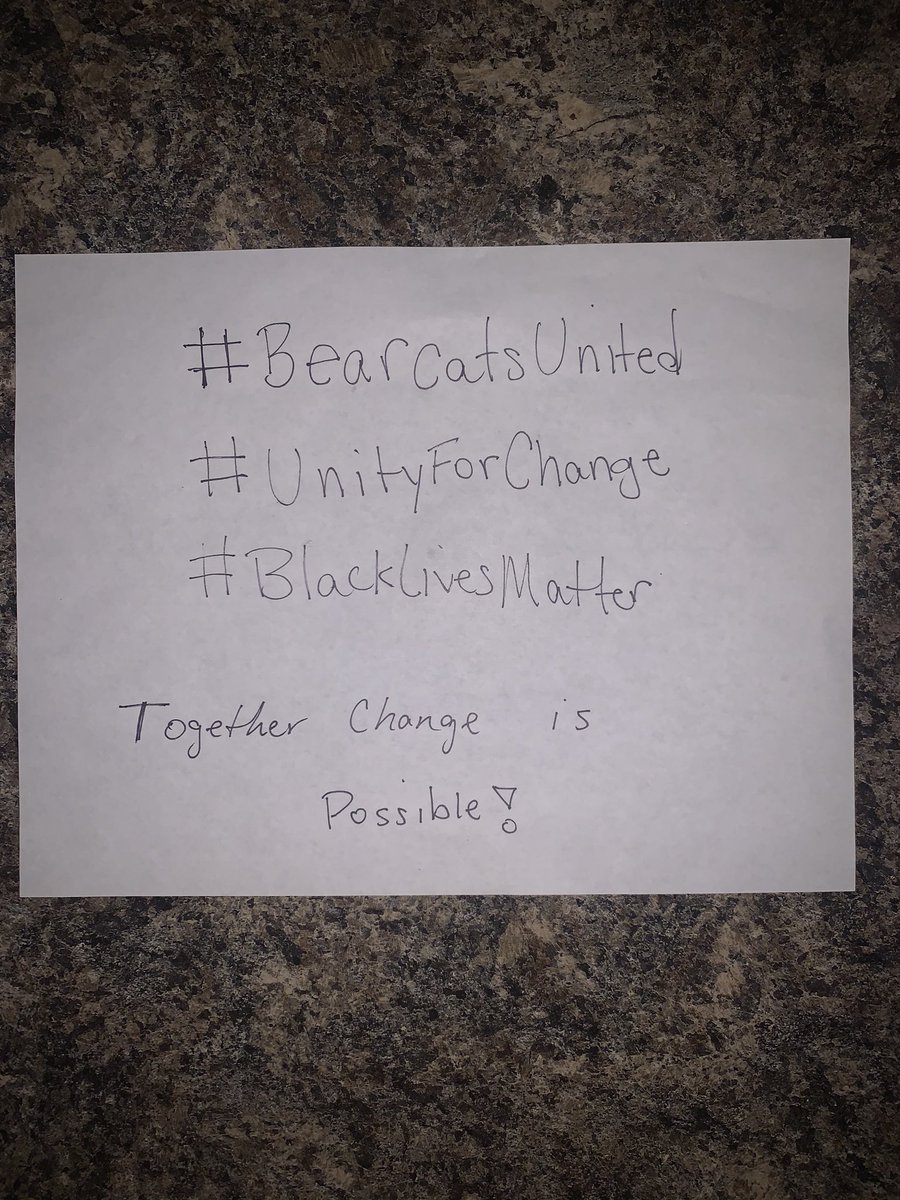 #BearcatsUnited
#UnityForChange
#BlackLivesMatter
Together Change is
Possible!